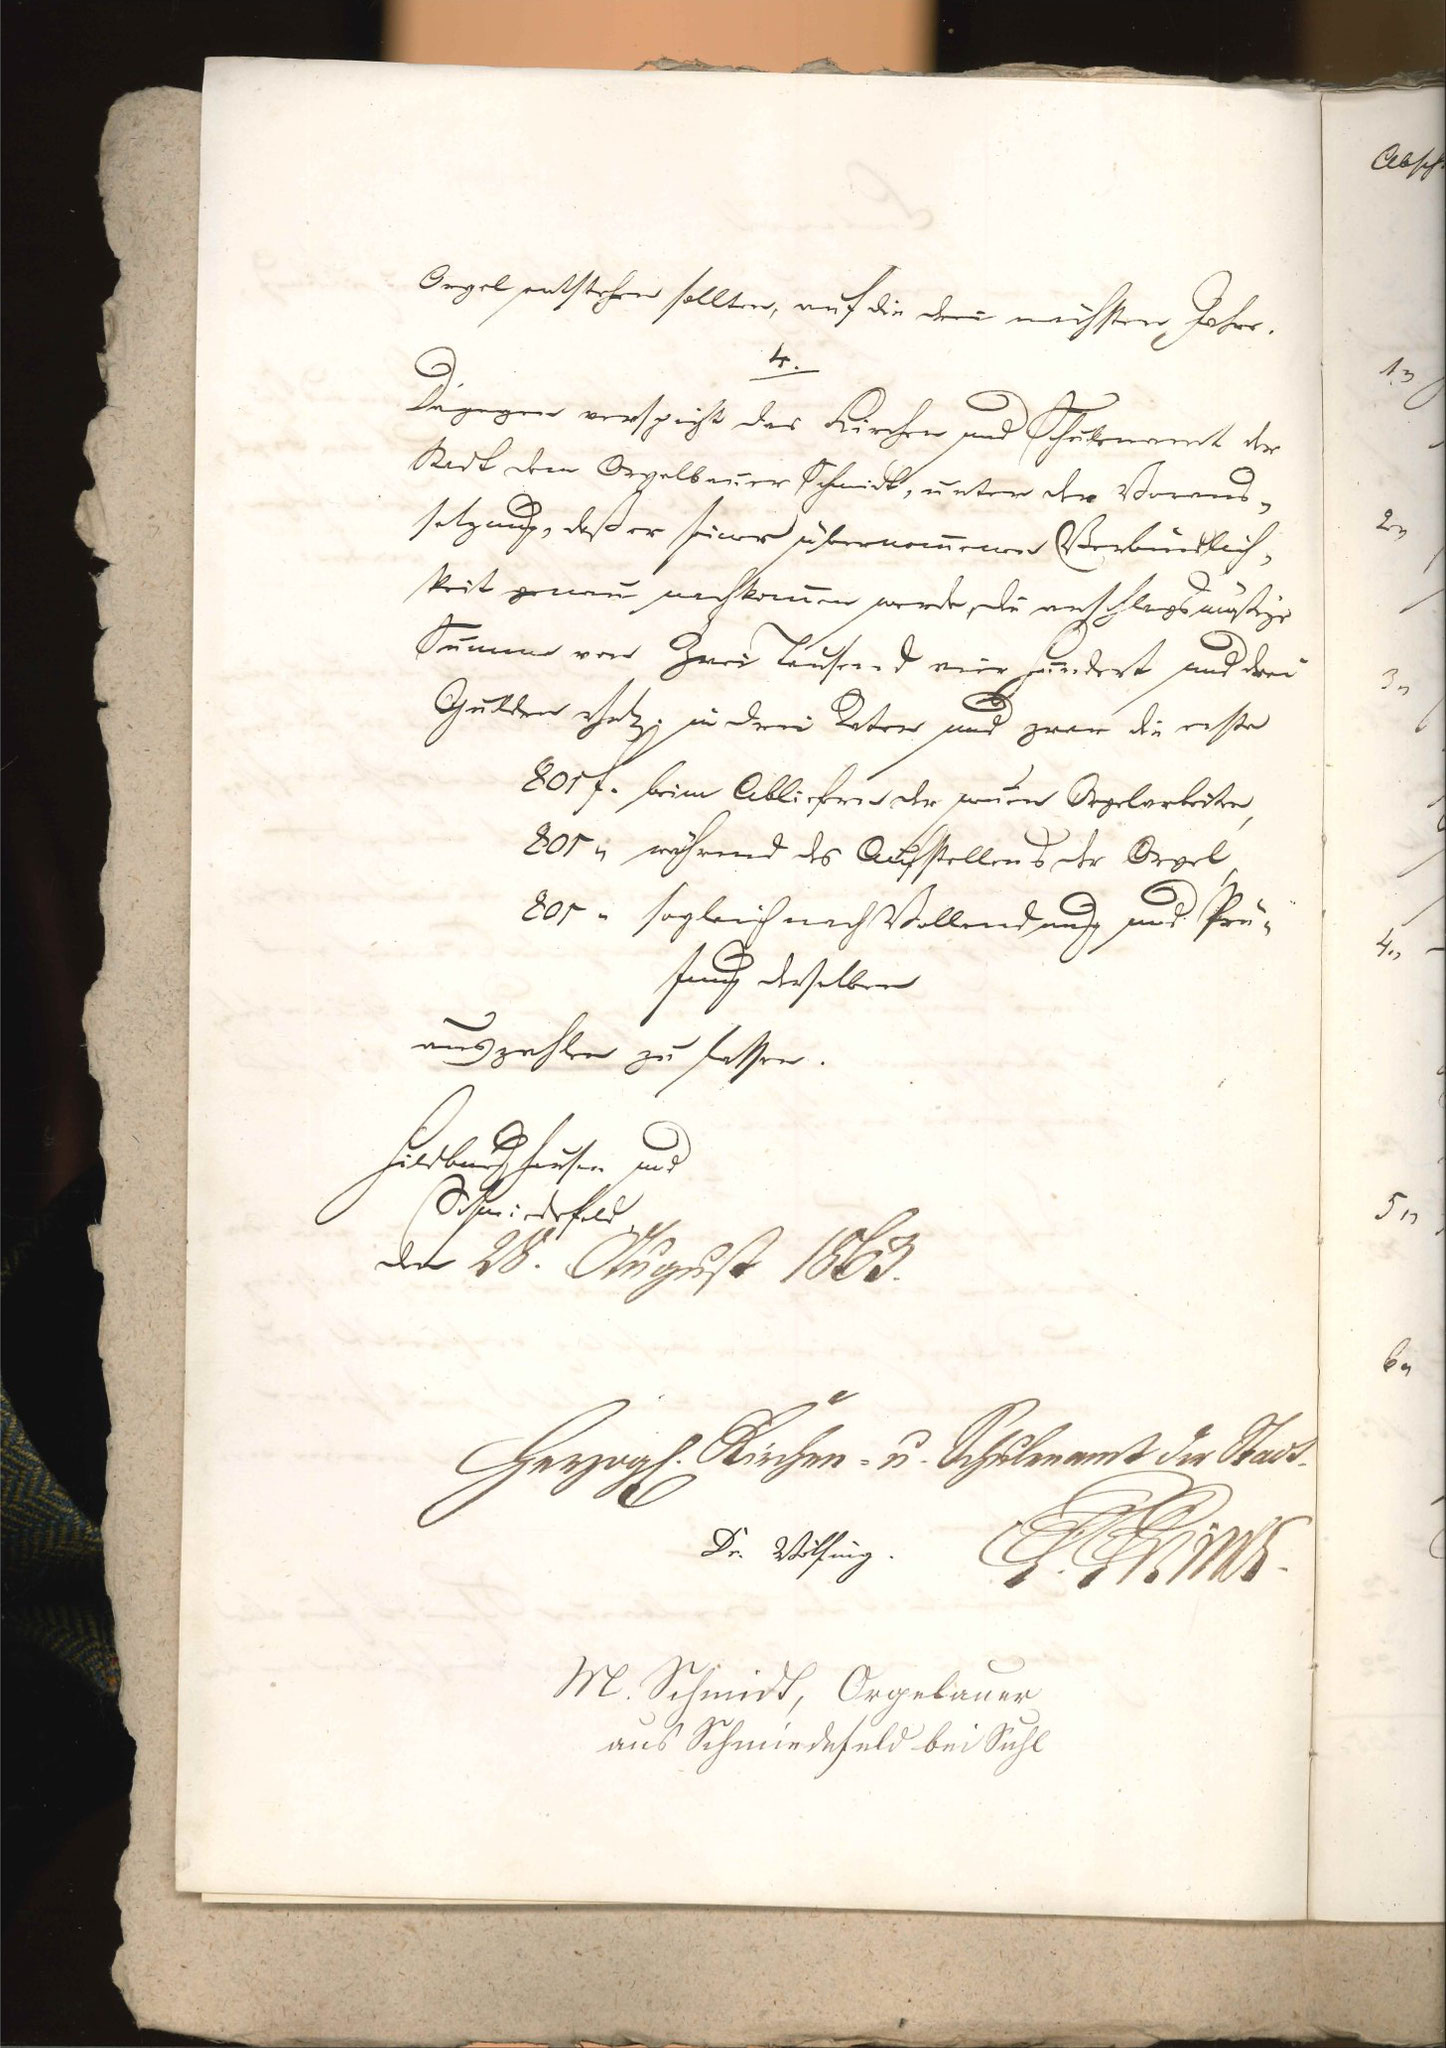 Orgel entstehen sollten, auf die drei nächsten Jahre.
4.
Dagegen verspricht das Kirchen und Schulenamt der
Stadt dem Orgelbauer Schmidt, unter der Voraus-
setzung, daß er seiner übernommenen Verbindlich-
keit genau nachkommen werde, die anschlagsmäßige
Summe von Zwei Tausend vier hundert und drei
Gulden rh. in drei Raten und zwar die erste
801 f. beim Abliefern der neuen Orgelarbeiten,
801 " während des Aufstellens der Orgel,
801 " sogleich nach Vollendung und Prü-
fung derselben
auszahlen zu lassen.
Hildburghausen und
Schmiedefeld,
den 28. August 1863.
Herzogl. Kirchen- u. Schulenamt der Stadt.
Dr. Völfing.
M. Schmidt, Orgelbauer
aus Schmiedefeld bei Suhl
1.,
2.,
3.,
4.,
5.,
6.,